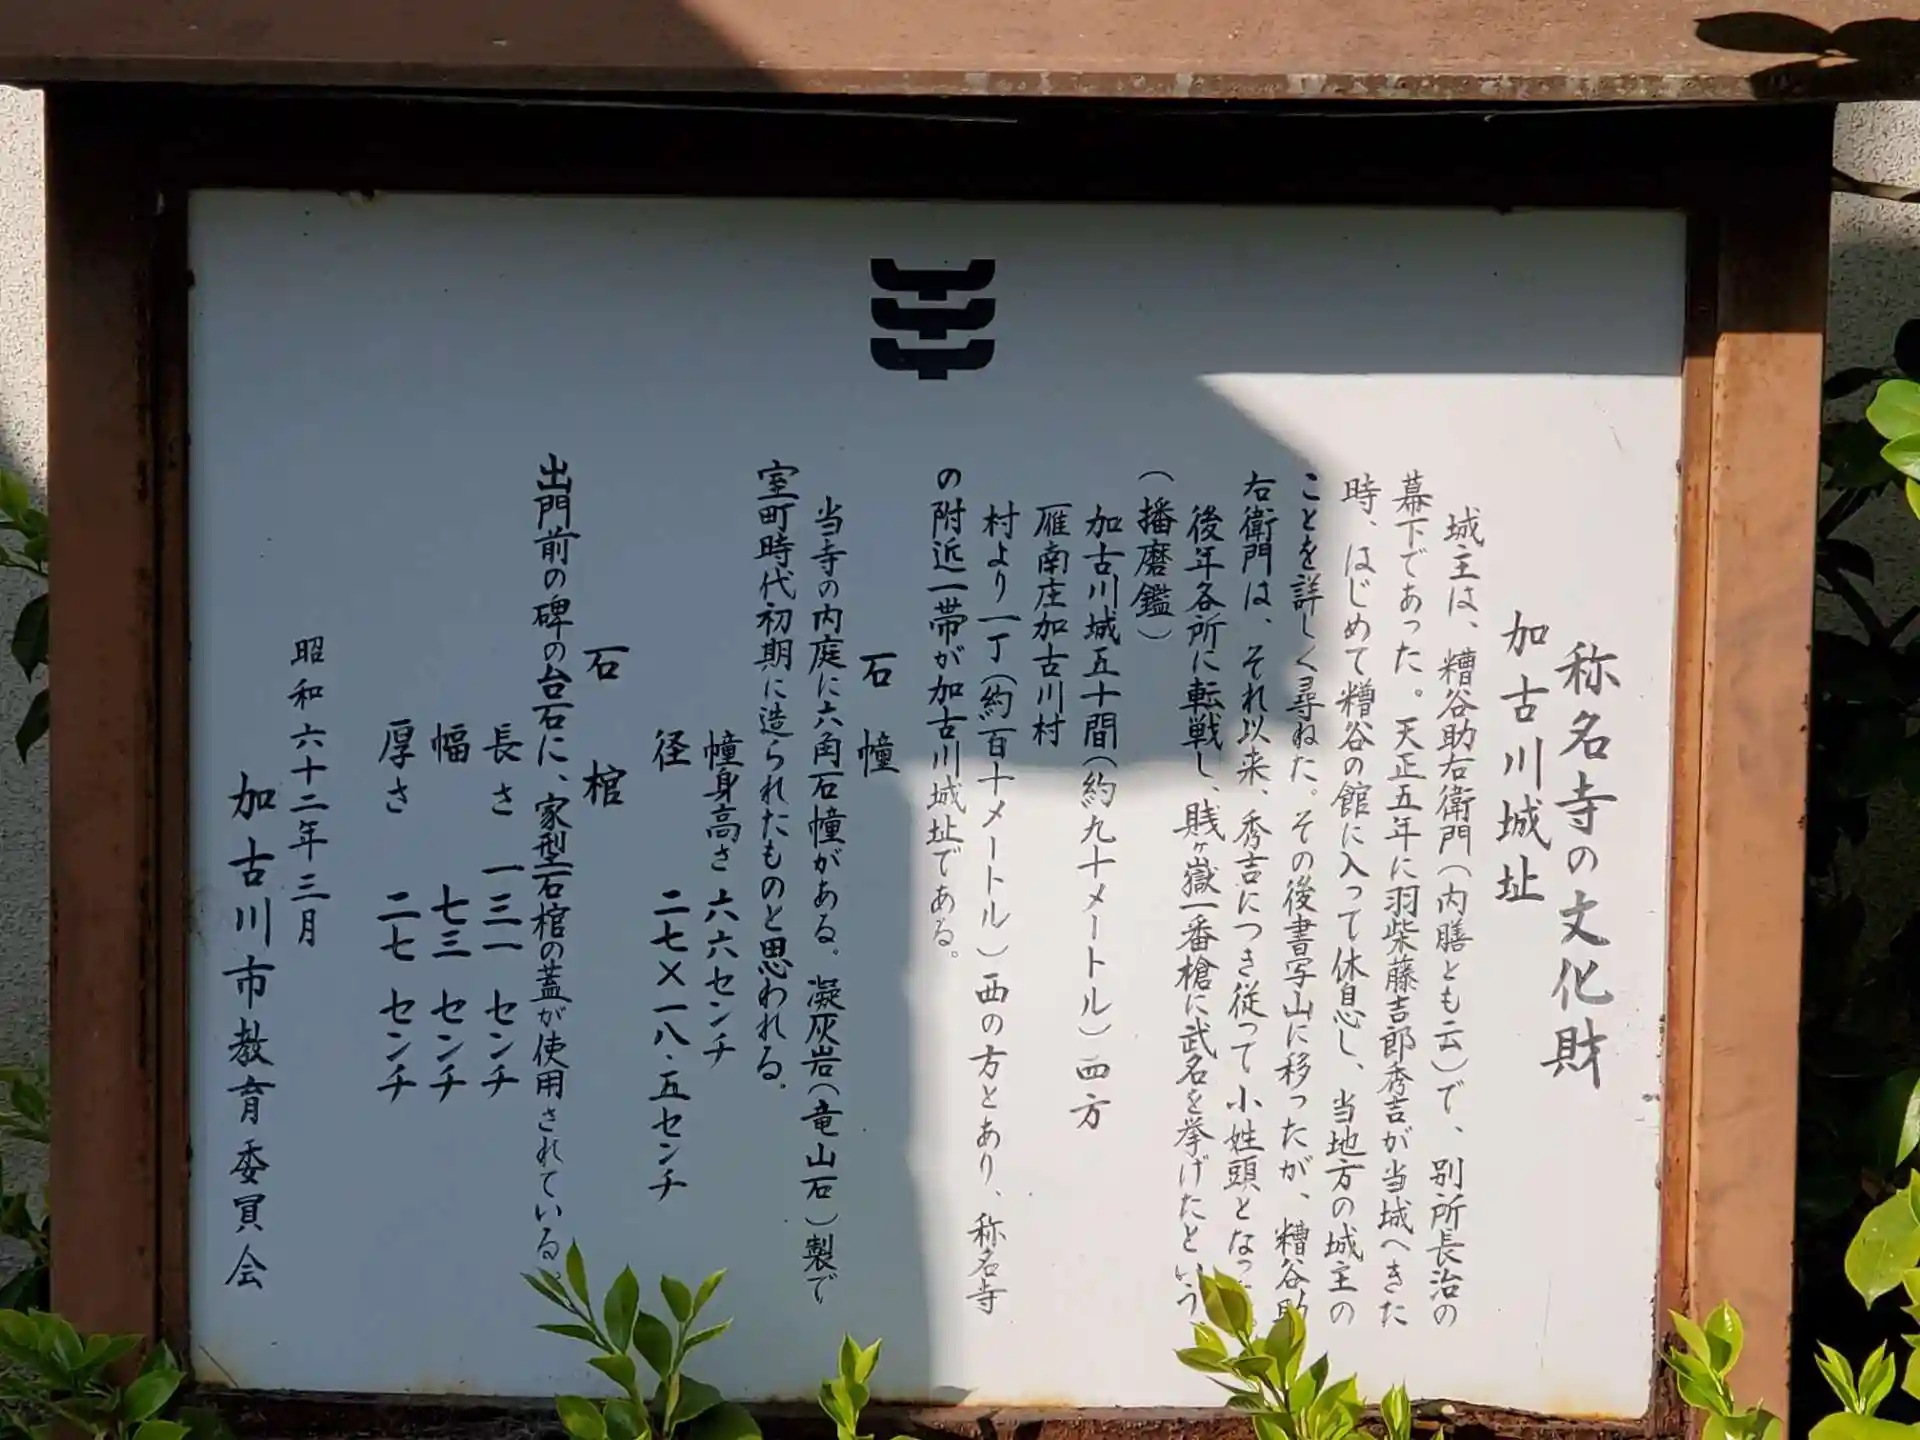 称名寺の文化財
加古川城址
城主は、糟谷助右衛門（内膳とも云）で、別所長治の
幕下であった。天正五年に羽柴藤吉郎秀吉が当城へきた
時、はじめて糟谷の館に入って休息し、当地方の城主の
ことを詳しく尋ねた。その後書写山に移ったが、糟谷助
右衛門は、それ以来、秀吉につき従って小姓頭となっ
後年各所に転戦し、賤ヶ嶽一番槍に武名を挙げたという
（播磨鑑）
加古川城五十間（約九十メートル）四方
雁南庄加古川村
村より一丁（約百十メートル）西の方とあり、称名寺
の附近一帯が加古川城址である。
石幢
当寺の内庭に六角石幢がある。凝灰岩（竜山石）製で
室町時代初期に造られたものと思われる。
幢身高さ 六六センチ
径 二七×一八・五センチ
石棺
出門前の碑の台石に、家型石棺の蓋が使用されている。
長さ 一三一センチ
幅 七三センチ
厚さ 二七センチ
昭和六十二年三月
加古川市教育委員会